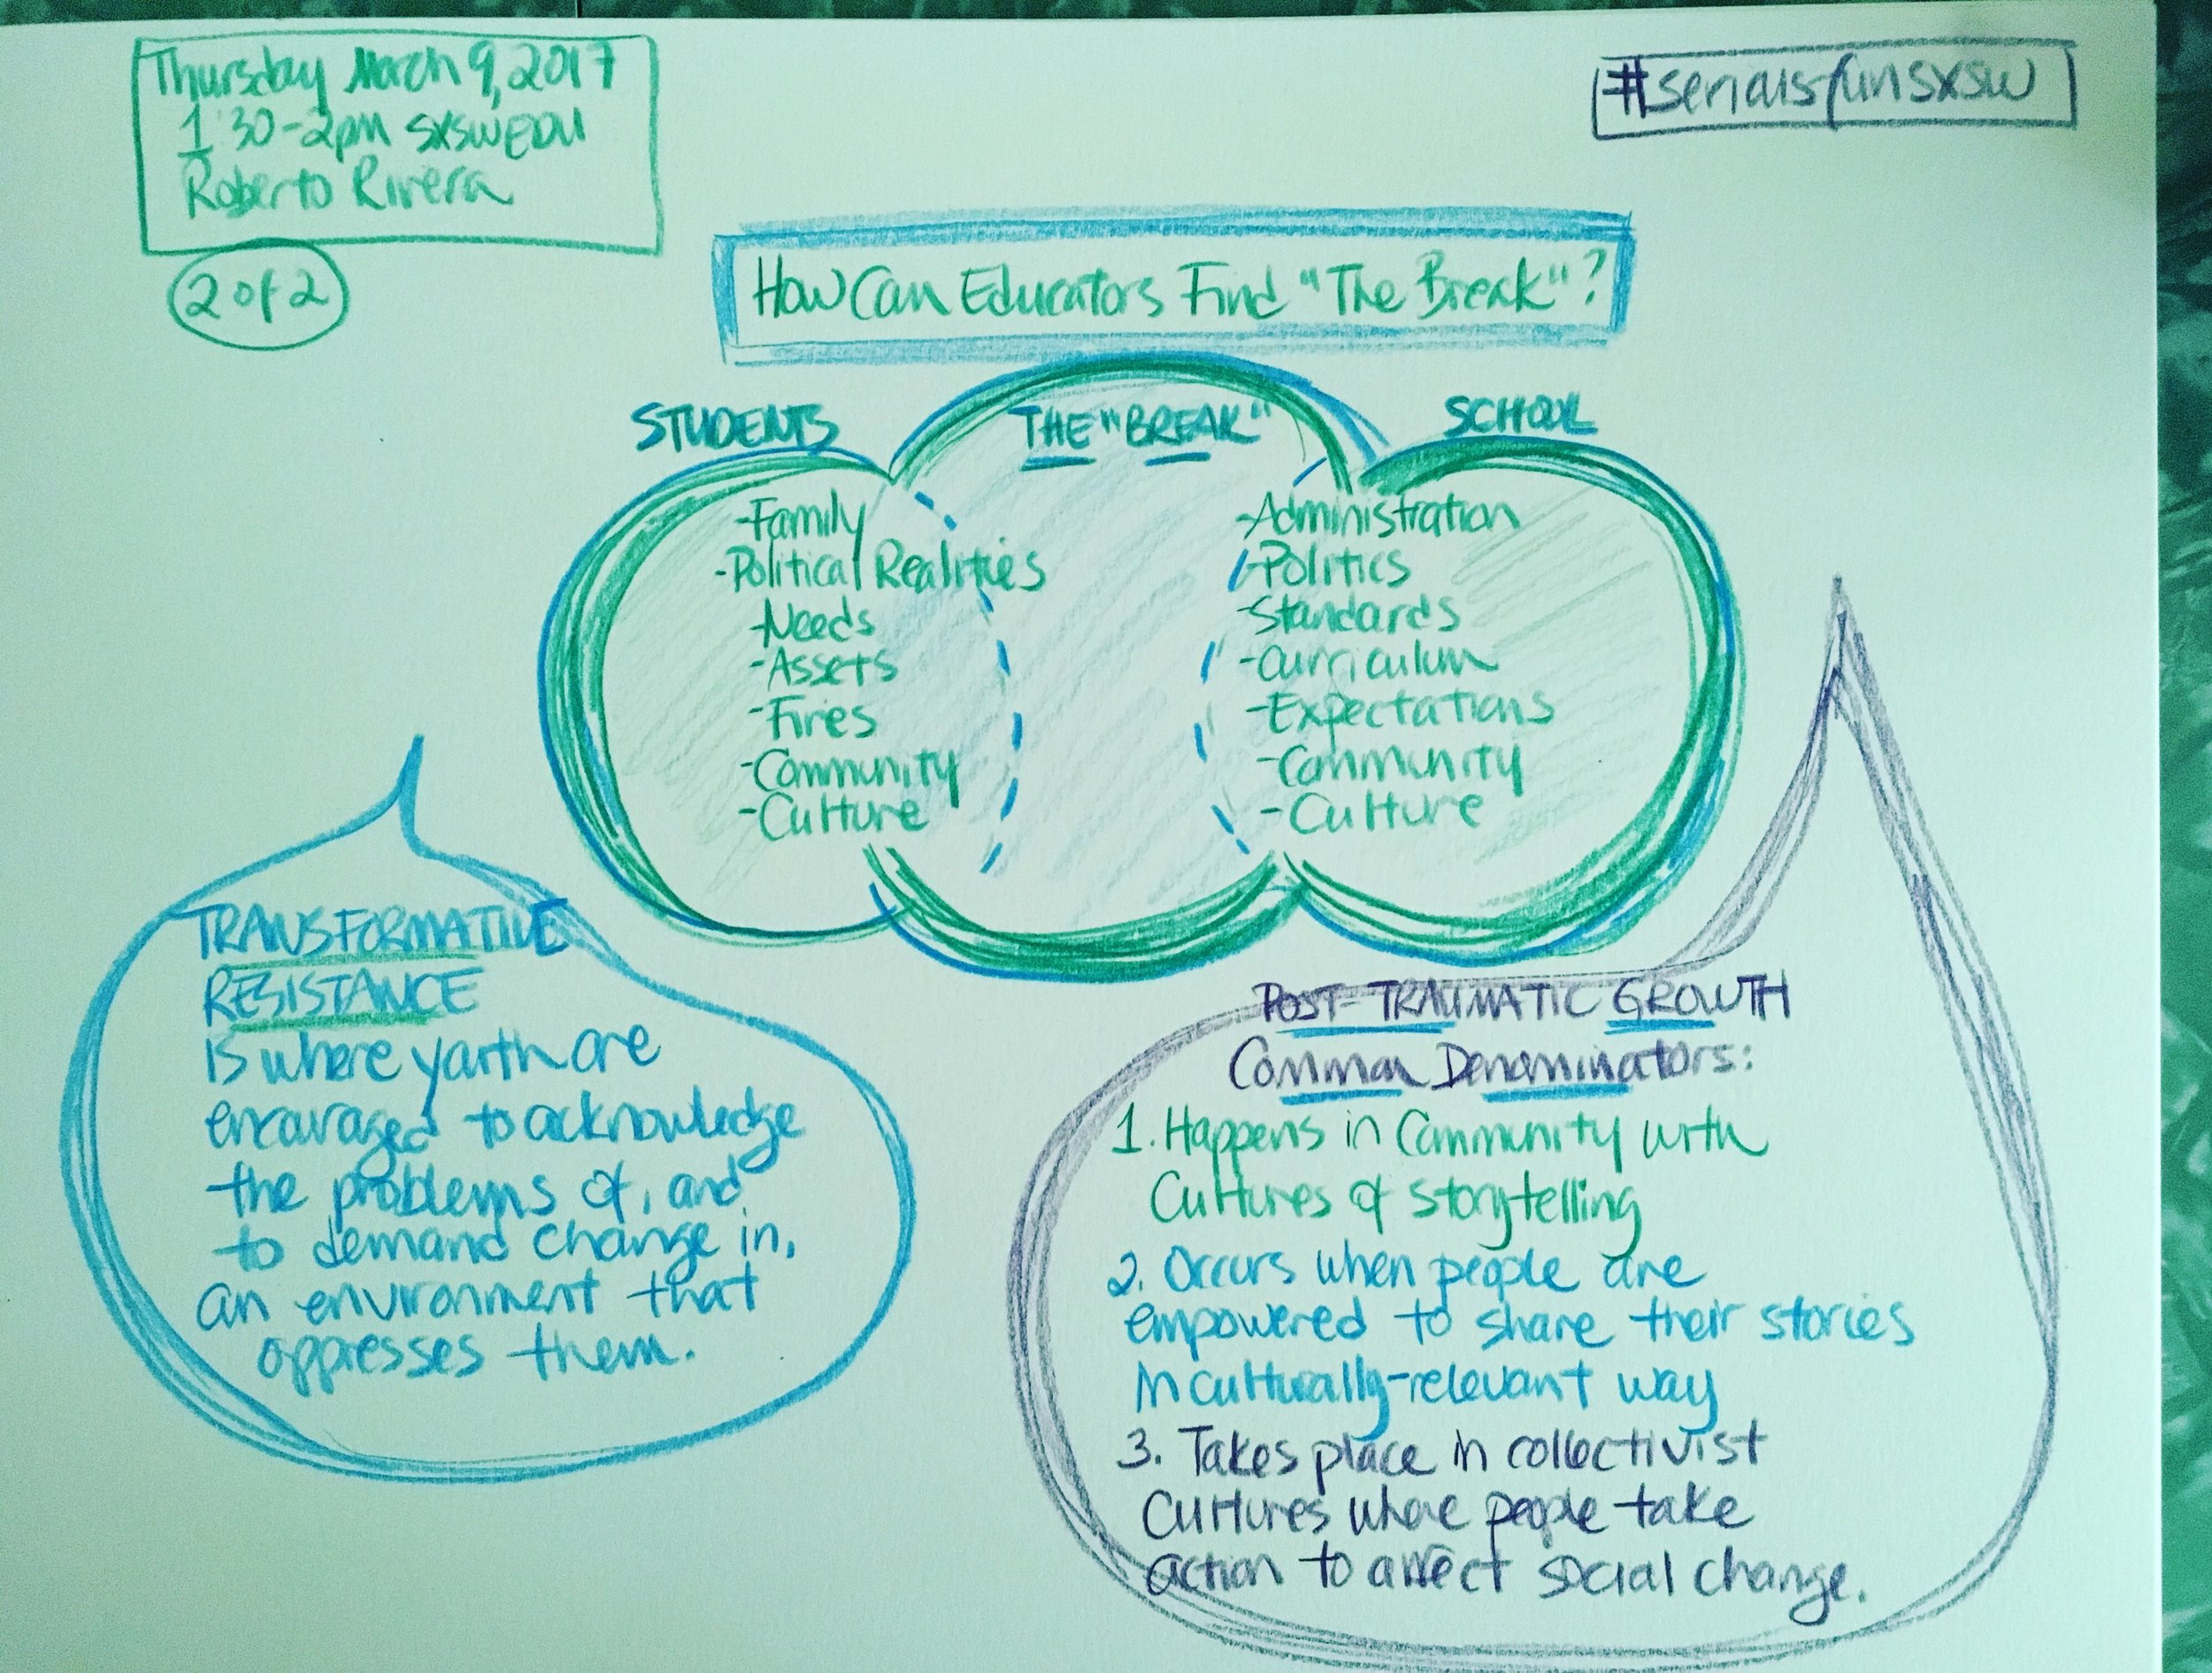 Thursday March 9, 2017
1:30-2pm SXSWEDU
Roberto Rivera
2 of 2
#seriousfunsxsw
How Can Educators Find "The Break"?
STUDENTS
-Family
-Political Realities
-Needs
-Assets
-Fires
-Community
-Culture
THE "BREAK"
SCHOOL
-Administration
-Politics
-Standards
-Curriculum
-Expectations
-Community
-Culture
TRANSFORMATIVE
RESISTANCE
is where youth are
encouraged to acknowledge
the problems of, and
to demand change in,
an environment that
oppresses them.
POST-TRAUMATIC GROWTH
Common Denominators:
1. Happens in Community with
Cultures of storytelling
2. Occurs when people are
empowered to share their stories
in culturally-relevant way
3. Takes place in collectivist
Cultures where people take
action to affect social change.